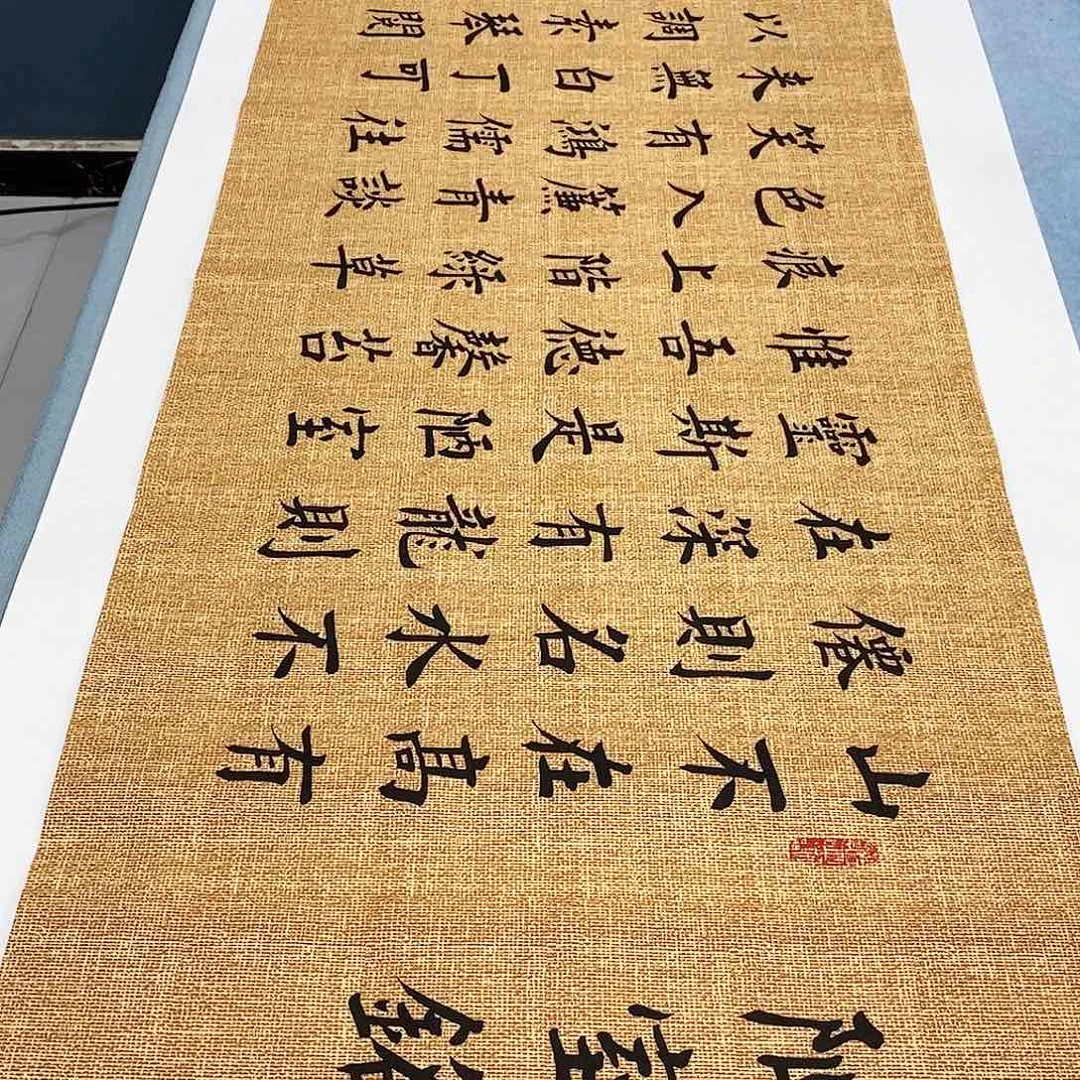 陋室銘
山不在髙有
僊則名水不
在深有龍則
靈斯是陋室
惟吾德馨苔
痕上階綠草
色入簾青談
笑有鴻儒往
来無白丁可
以調素琴閱